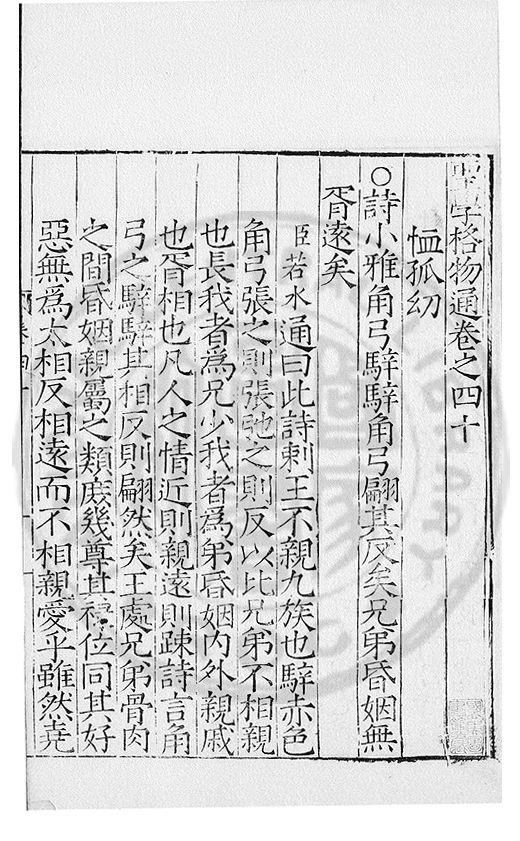 聖學格物通卷之四十
恤孤幼
○詩小雅角弓騂騂角弓翩其反矣兄弟昏姻無
胥遠矣
臣若水通曰此詩刺王不親九族也騂赤色
角弓張之則張弛之則反以比兄弟不相親
也長我者為兄少我者為弟昏姻内外親戚
也胥相也凡人之情近則親遠則踈詩言角
弓之騂騂其相反則翩然矣王處兄弟骨肉
之間昏姻親屬之類庶幾尊其祿位同其好
惡無為太相反相遠而不相親愛乎雖然堯